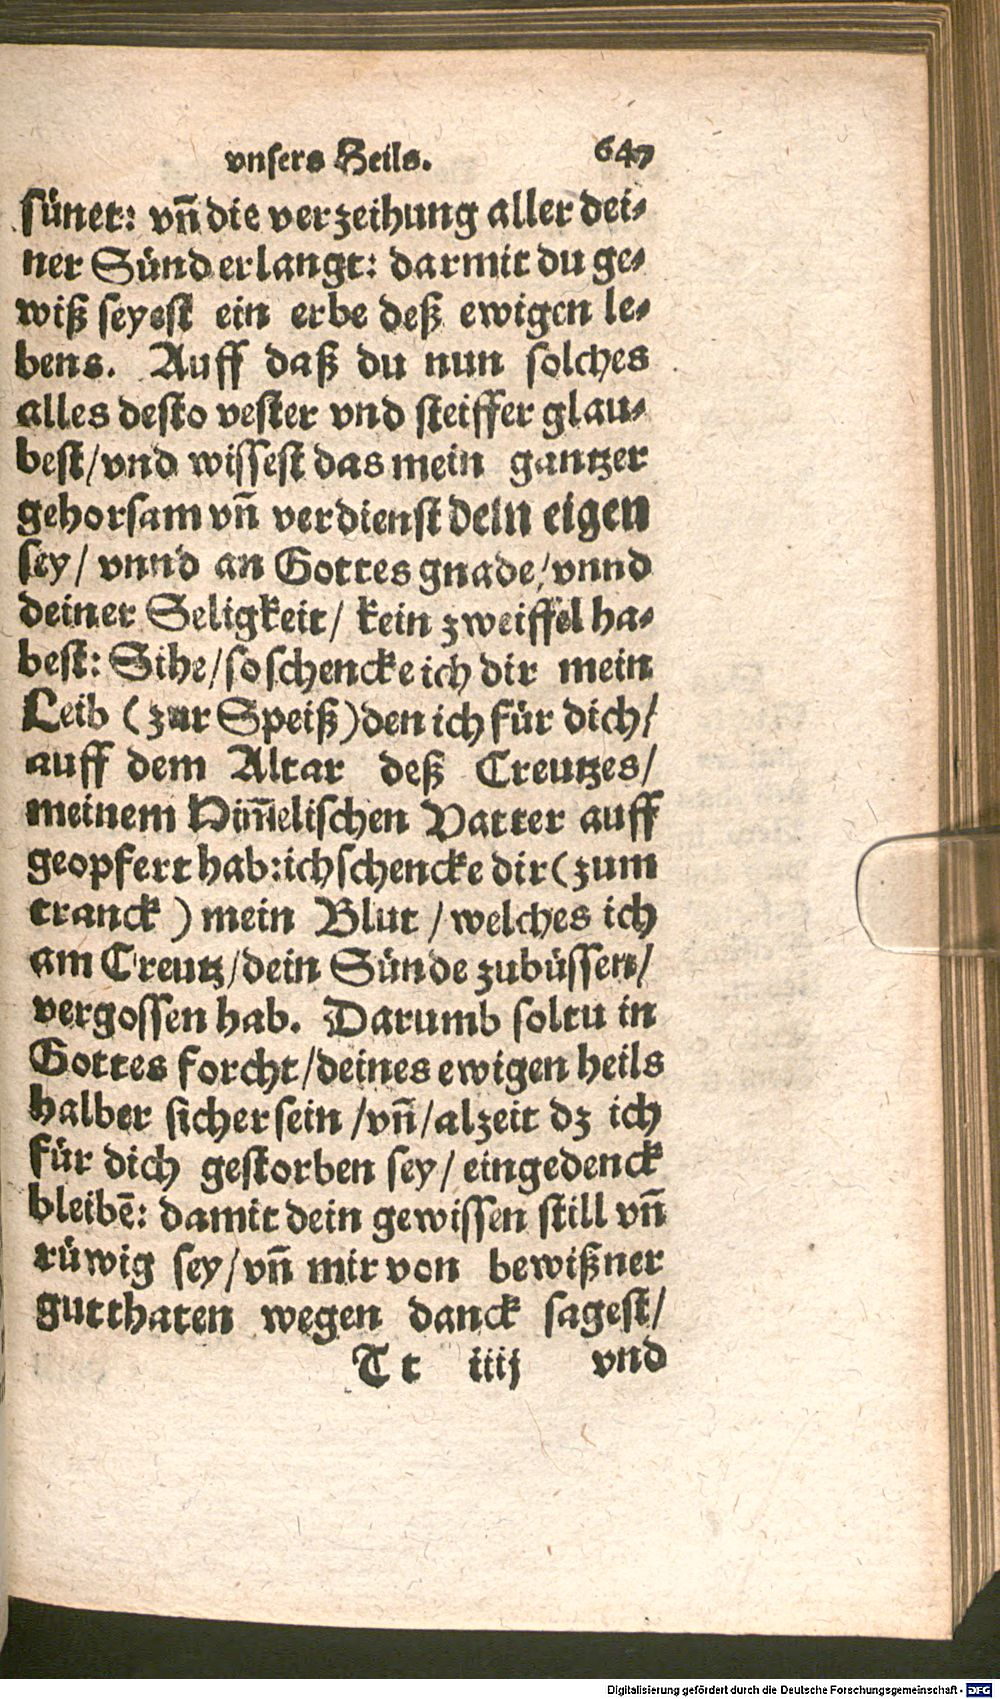 vnsers Heils. 647
sünet: vñ die verzeihung aller dei⸗
ner Sünd erlangt: darmit du ge⸗
wiß seyest ein erbe deß ewigen le⸗
bens. Auff daß du nun solches
alles desto vester vnd steiffer glau⸗
best/vnd wissest das mein gantzer
gehorsam vñ verdienst dein eigen
sey/ vnnd an Gottes gnade/vnnd
deiner Seligkeit/ kein zweiffel ha⸗
best: Sihe/so schencke ich dir mein
Leib (zur Speiß) den ich für dich/
auff dem Altar deß Creutzes/
meinem Him̄elischen Vatter auff
geopfert hab: ich schencke dir (zum
tranck) mein Blut/ welches ich
am Creutz/dein Sünde zubüssen/
vergossen hab. Darumb soltu in
Gottes forcht/deines ewigen heils
halber sicher sein/vñ/alzeit dz ich
für dich gestorben sey/ eingedenck
bleibē: damit dein gewissen still vñ
rüwig sey/vñ mir von bewißner
gutthaten wegen danck sagest/
T t iiij vnd
Digitalisierung gefördert durch die Deutsche Forschungsgemeinschaft - DFG